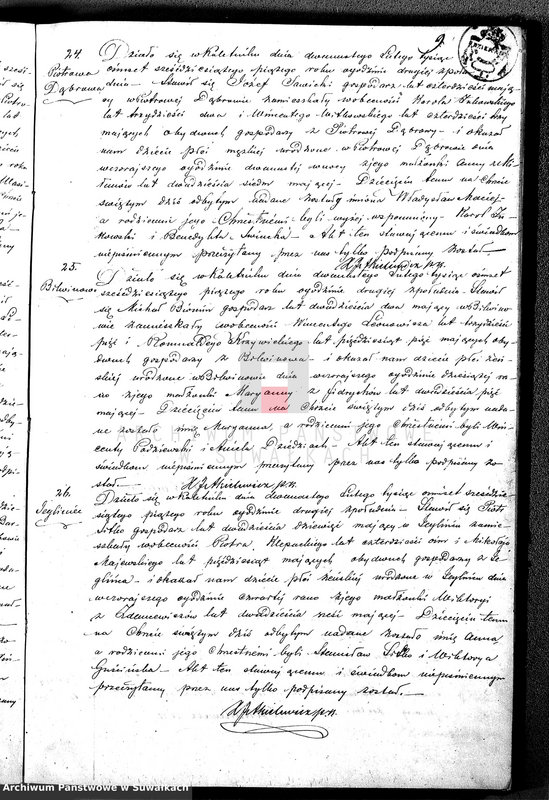 9
24.
Piotrowa
Dąbrowa
Działo się w Kaletniku dnia dwunastego Lutego tysiąc
ośmset sześćdziesiątego piątego roku o godzinie drugiej z połu
dnia Stawił się Józef Sawicki gospodarz lat czterdzieści mają
cy w Piotrowej Dąbrowie zamieszkały w obecności Karola
lat trzydzieści dwa i Wincentego Witkowskiego lat czterdzieści trzy
mających obydwóch gospodarzy z Piotrowej Dąbrowy i okazał
nam dziecię płci męzkiej urodzone w Piotrowej Dąbrowie dnia
wczorajszego o godzinie dwunastej w nocy z jego małżonki Anny z
lat dwadzieścia siedm mającej Dziecięciu temu na Chrzcie
świętym dziś odbytym nadane zostały imiona Władysław Maciej
a rodzicami jego Chrzestnemi byli wyżej wspomniony Karol
i Benedykta Akt ten stawającemu i świadkom
niepiśmiennym przeczytany przez nas tylko podpisany został
25.
Bilwinowo
Działo się w Kaletniku dnia dwunastego Lutego tysiąc ośmset
sześćdziesiątego piątego roku o godzinie drugiej z południa Stawił
się Michał gospodarz lat dwadzieścia dwa mający w Bilwino
wie zamieszkały w obecności Wincentego Leonowicza lat trzydzieści
pięć i Krzywickiego lat pięćdziesiąt pięć mających oby
dwóch gospodarzy z Bilwinowa i okazał nam dziecię płci żeń
skiej urodzone w Bilwinowie dnia wczorajszego o godzinie dziesiątej ra
no z jego małżonki Maryanny z lat dwadzieścia pięć
mającej Dziecięciu temu na Chrzcie świętym dziś odbytym nada
ne zostało imię Maryanna, a rodzicami jego Chrzestnemi byli Win
centy i Aniela Akt ten stawającemu i
świadkom niepiśmiennym przeczytany przez nas tylko podpisany zo
stał
26.
Jegliniec
Działo się w Kaletniku dnia dwunastego Lutego tysiąc ośmset sześćdzie
siątego piątego roku o godzinie drugiej z południa Stawił się Piotr
Sitko gospodarz lat dwadzieścia dziewięć mający w Jeglińcu zamie
szkały w obecności Piotra lat czterdzieści ośm i Mikołaja
Majewskiego lat pięćdziesiąt mających obydwóch gospodarzy z Je
glińca i okazał nam dziecię płci żeńskiej urodzone w Jeglińcu dnia
wczorajszego o godzinie czwartej rano z jego małżonki Wiktoryi
z lat dwadzieścia sześć mającej Dziecięciu temu
na Chrzcie świętym dziś odbytym nadane zostało imię Anna
a rodzicami jego Chrzestnemi byli Stanisław Sitko i Wiktorya
Akt ten stawającemu i świadkom niepiśmiennym
przeczytany przez nas tylko podpisany został
ARCHIWUM PAŃSTWOWE
W SUWAŁKACH
Archiwum Państwowe w Suwałkach